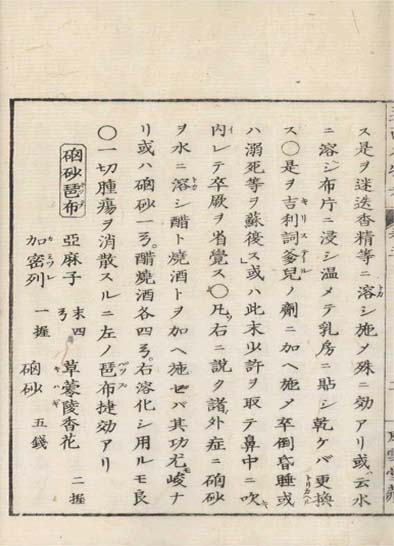 ス是ヲ迷迭香精等ニ溶シ施メ殊ニ効アリ或云水
ニ溶シ布片ニ浸シ温メテ乳房ニ貼シ乾ケバ更換
ス〇是ヲ吉利詞爹兒ノ劑ニ加ヘ施メ卒倒昏睡或
ハ溺死等ヲ蘇復ス或ハ此末少許ヲ取テ鼻中ニ吹
内レテ卒厥ヲ省覚ス〇凡ソ右ニ説ク諸外症ニ硇砂
ヲ水ニ溶シ醋ト焼酒トヲ加ヘ施セバ其功尤峻ナ
リ或ハ硇砂一ㄢ。醋焼酒各四ㄢ。右溶化シ用ルモ良
〇一切腫瘍ヲ消散スルニ左ノ琶布捷効アリ
硇砂琶布 亞麻子 末四ㄢ 草蒙陵香花 二握
加密列 一握 硇砂 五錢